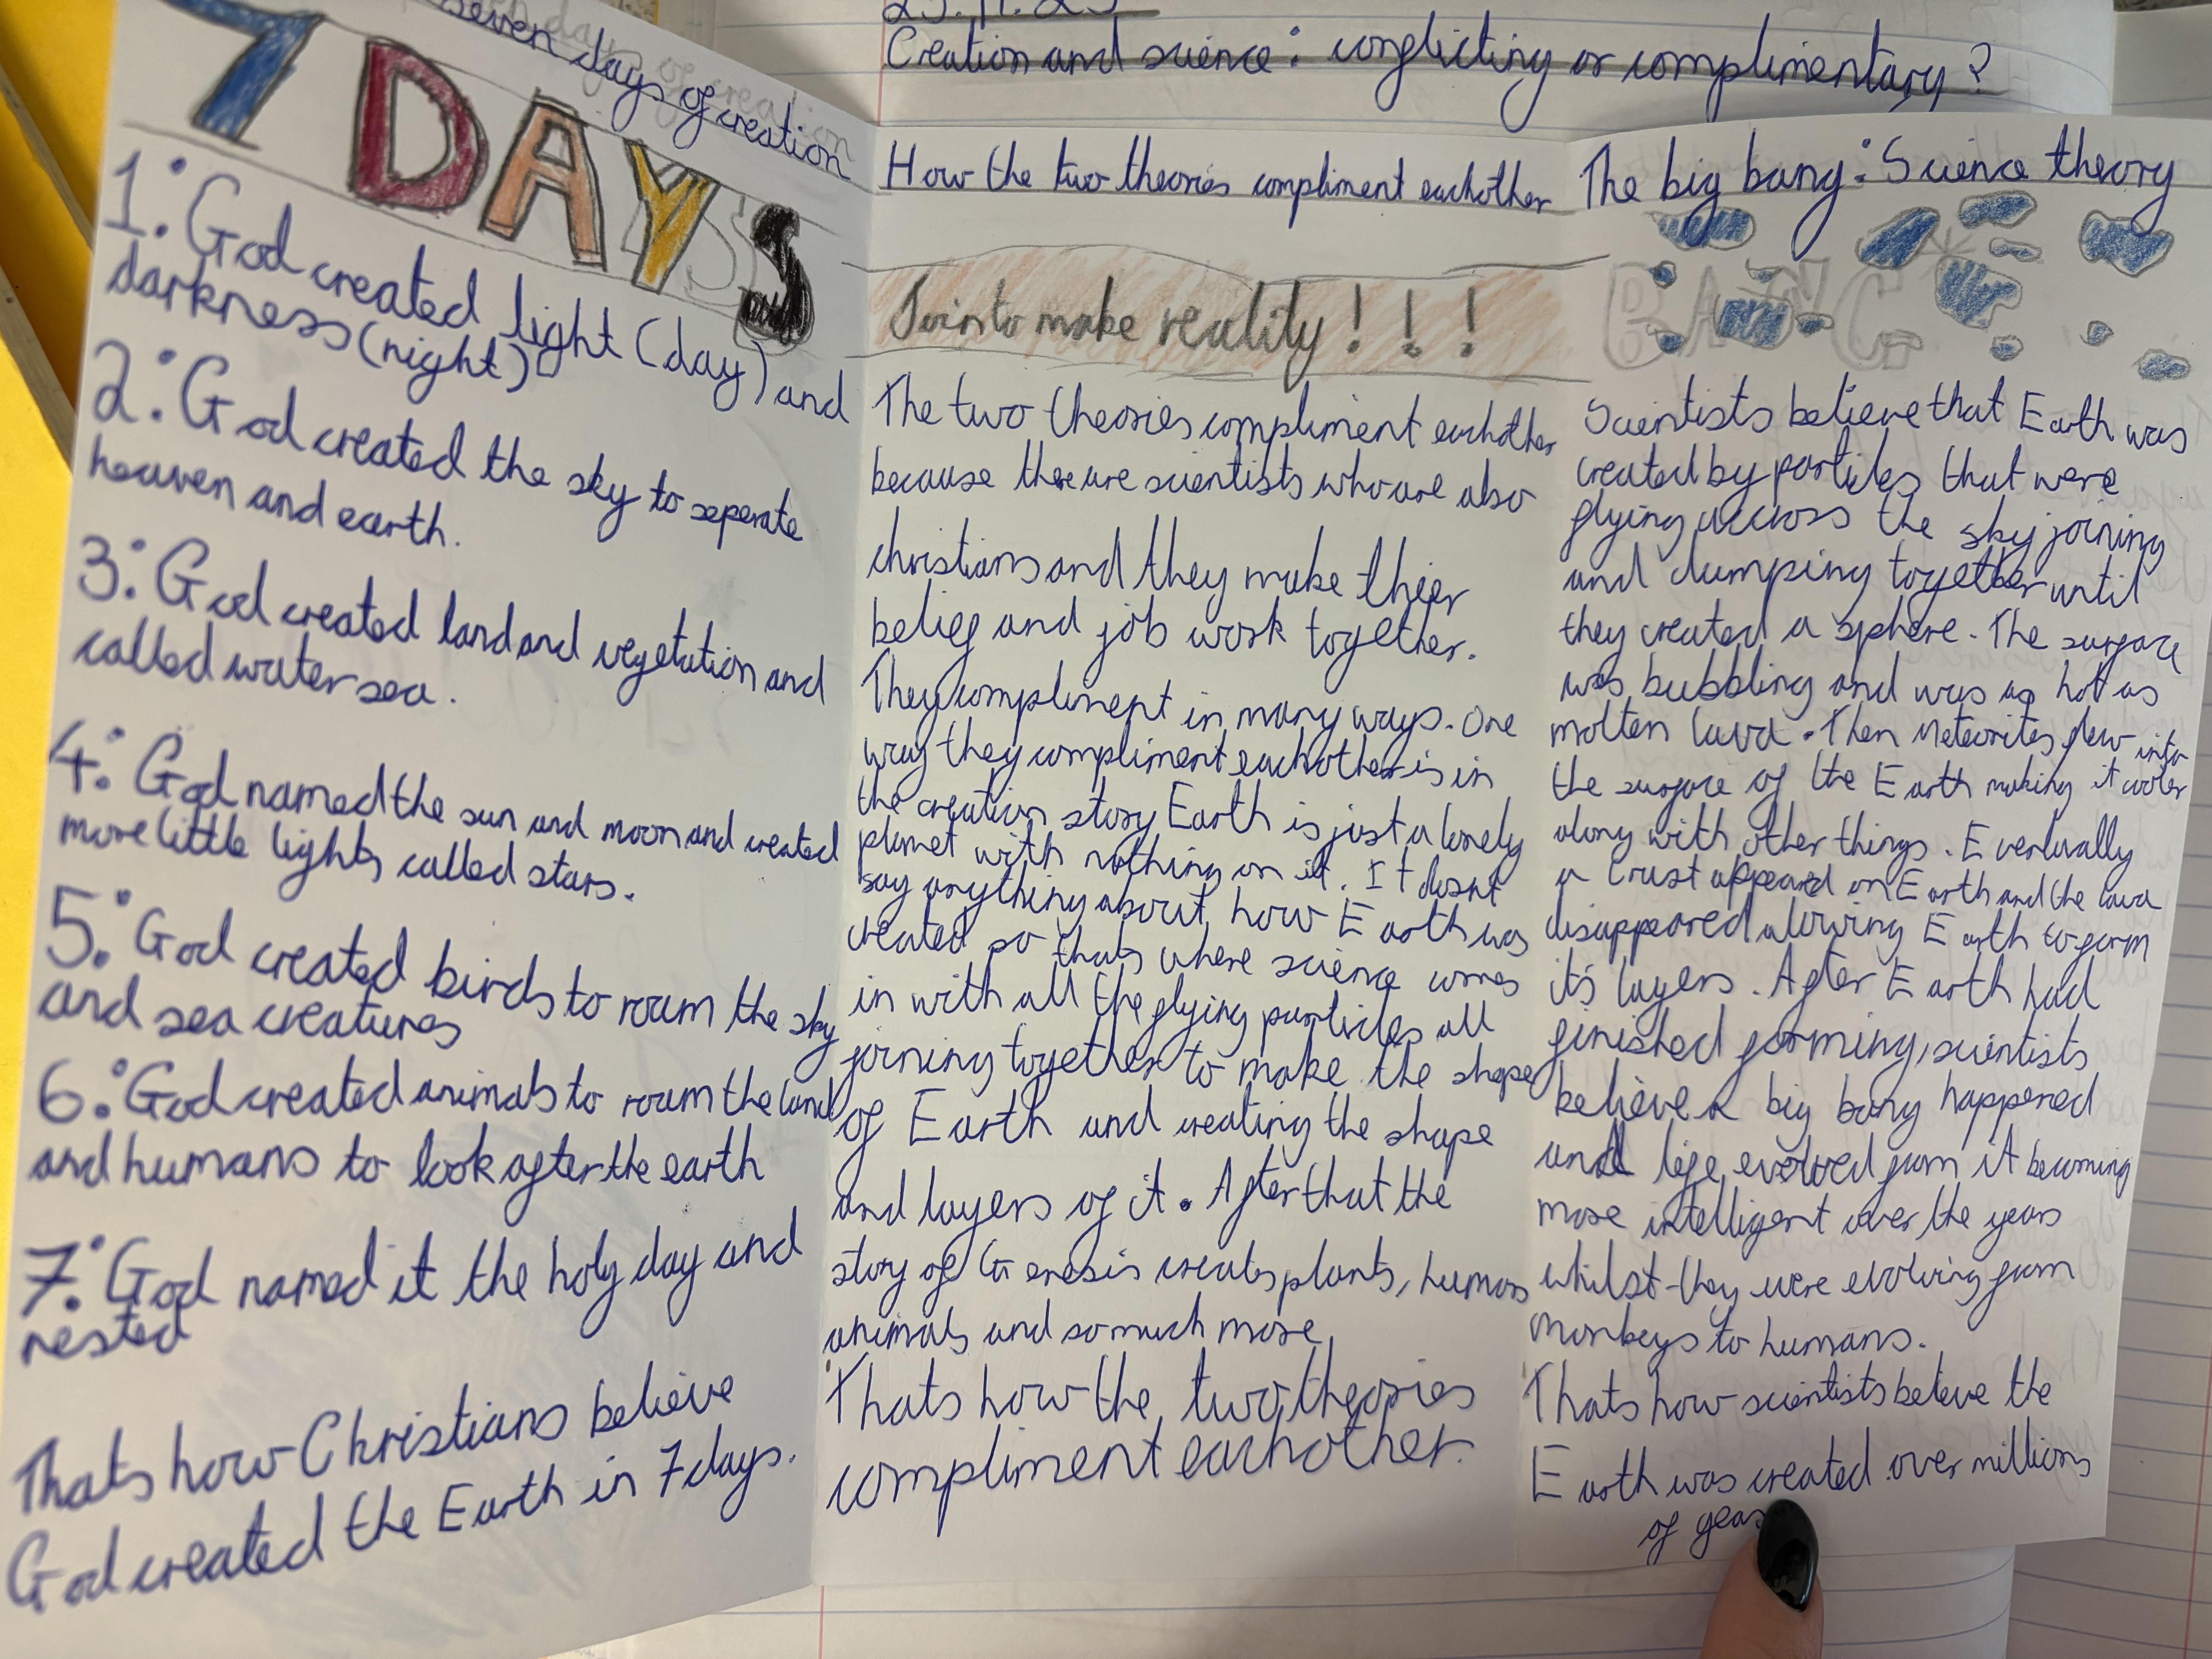 Creation and science: conflicting or complimentary?
seven days of creation
7 DAYS
1: God created light (day) and
darkness (night).
2: God created the sky to seperate
heaven and earth.
3: God created land and vegetation and
called water sea.
4: God named the sun and moon and created
more little lights called stars.
5: God created birds to roam the sky
and sea creatures
6: God created animals to roam the land
and humans to look after the earth
7: God named it the holy day and
rested
Thats how Christians believe
God created the Earth in 7 days.
How the two theories compliment eachother
Join to make reality!!!
The two theories compliment eachother
because there are scientists who are also
christians and they make thier
belief and job work together.
They compliment in many ways. One
way they compliment eachother is in
the creation story Earth is just a lonely
planet with nothing on it. It dosnt
say anything about how Earth was
created so thats where science comes
in with all the flying particles all
joining together to make the shape
of Earth and creating the shape
and layers of it. After that the
story of Genesis creates plants, humans
animals and so much more
Thats how the two theories
compliment eachother.
The big bang: Science theory
BANG
Scientists believe that Earth was
created by particles that were
flying accross the sky joining
and clumping together until
they created a sphere. The surface
was bubbling and was as hot as
molten lava. Then Meteorites flew into
the surface of the Earth making it cooler
along with other things. Eventually
a crust appeared on Earth and the lava
disappeared alowing Earth to form
it's layers. After Earth had
finished forming, scientists
believe a big bang happened
and life evolved from it becoming
more intelligent over the years
whilst they were evolving from
monkeys to humans.
Thats how scientists beleve the
Earth was created over millions
of years